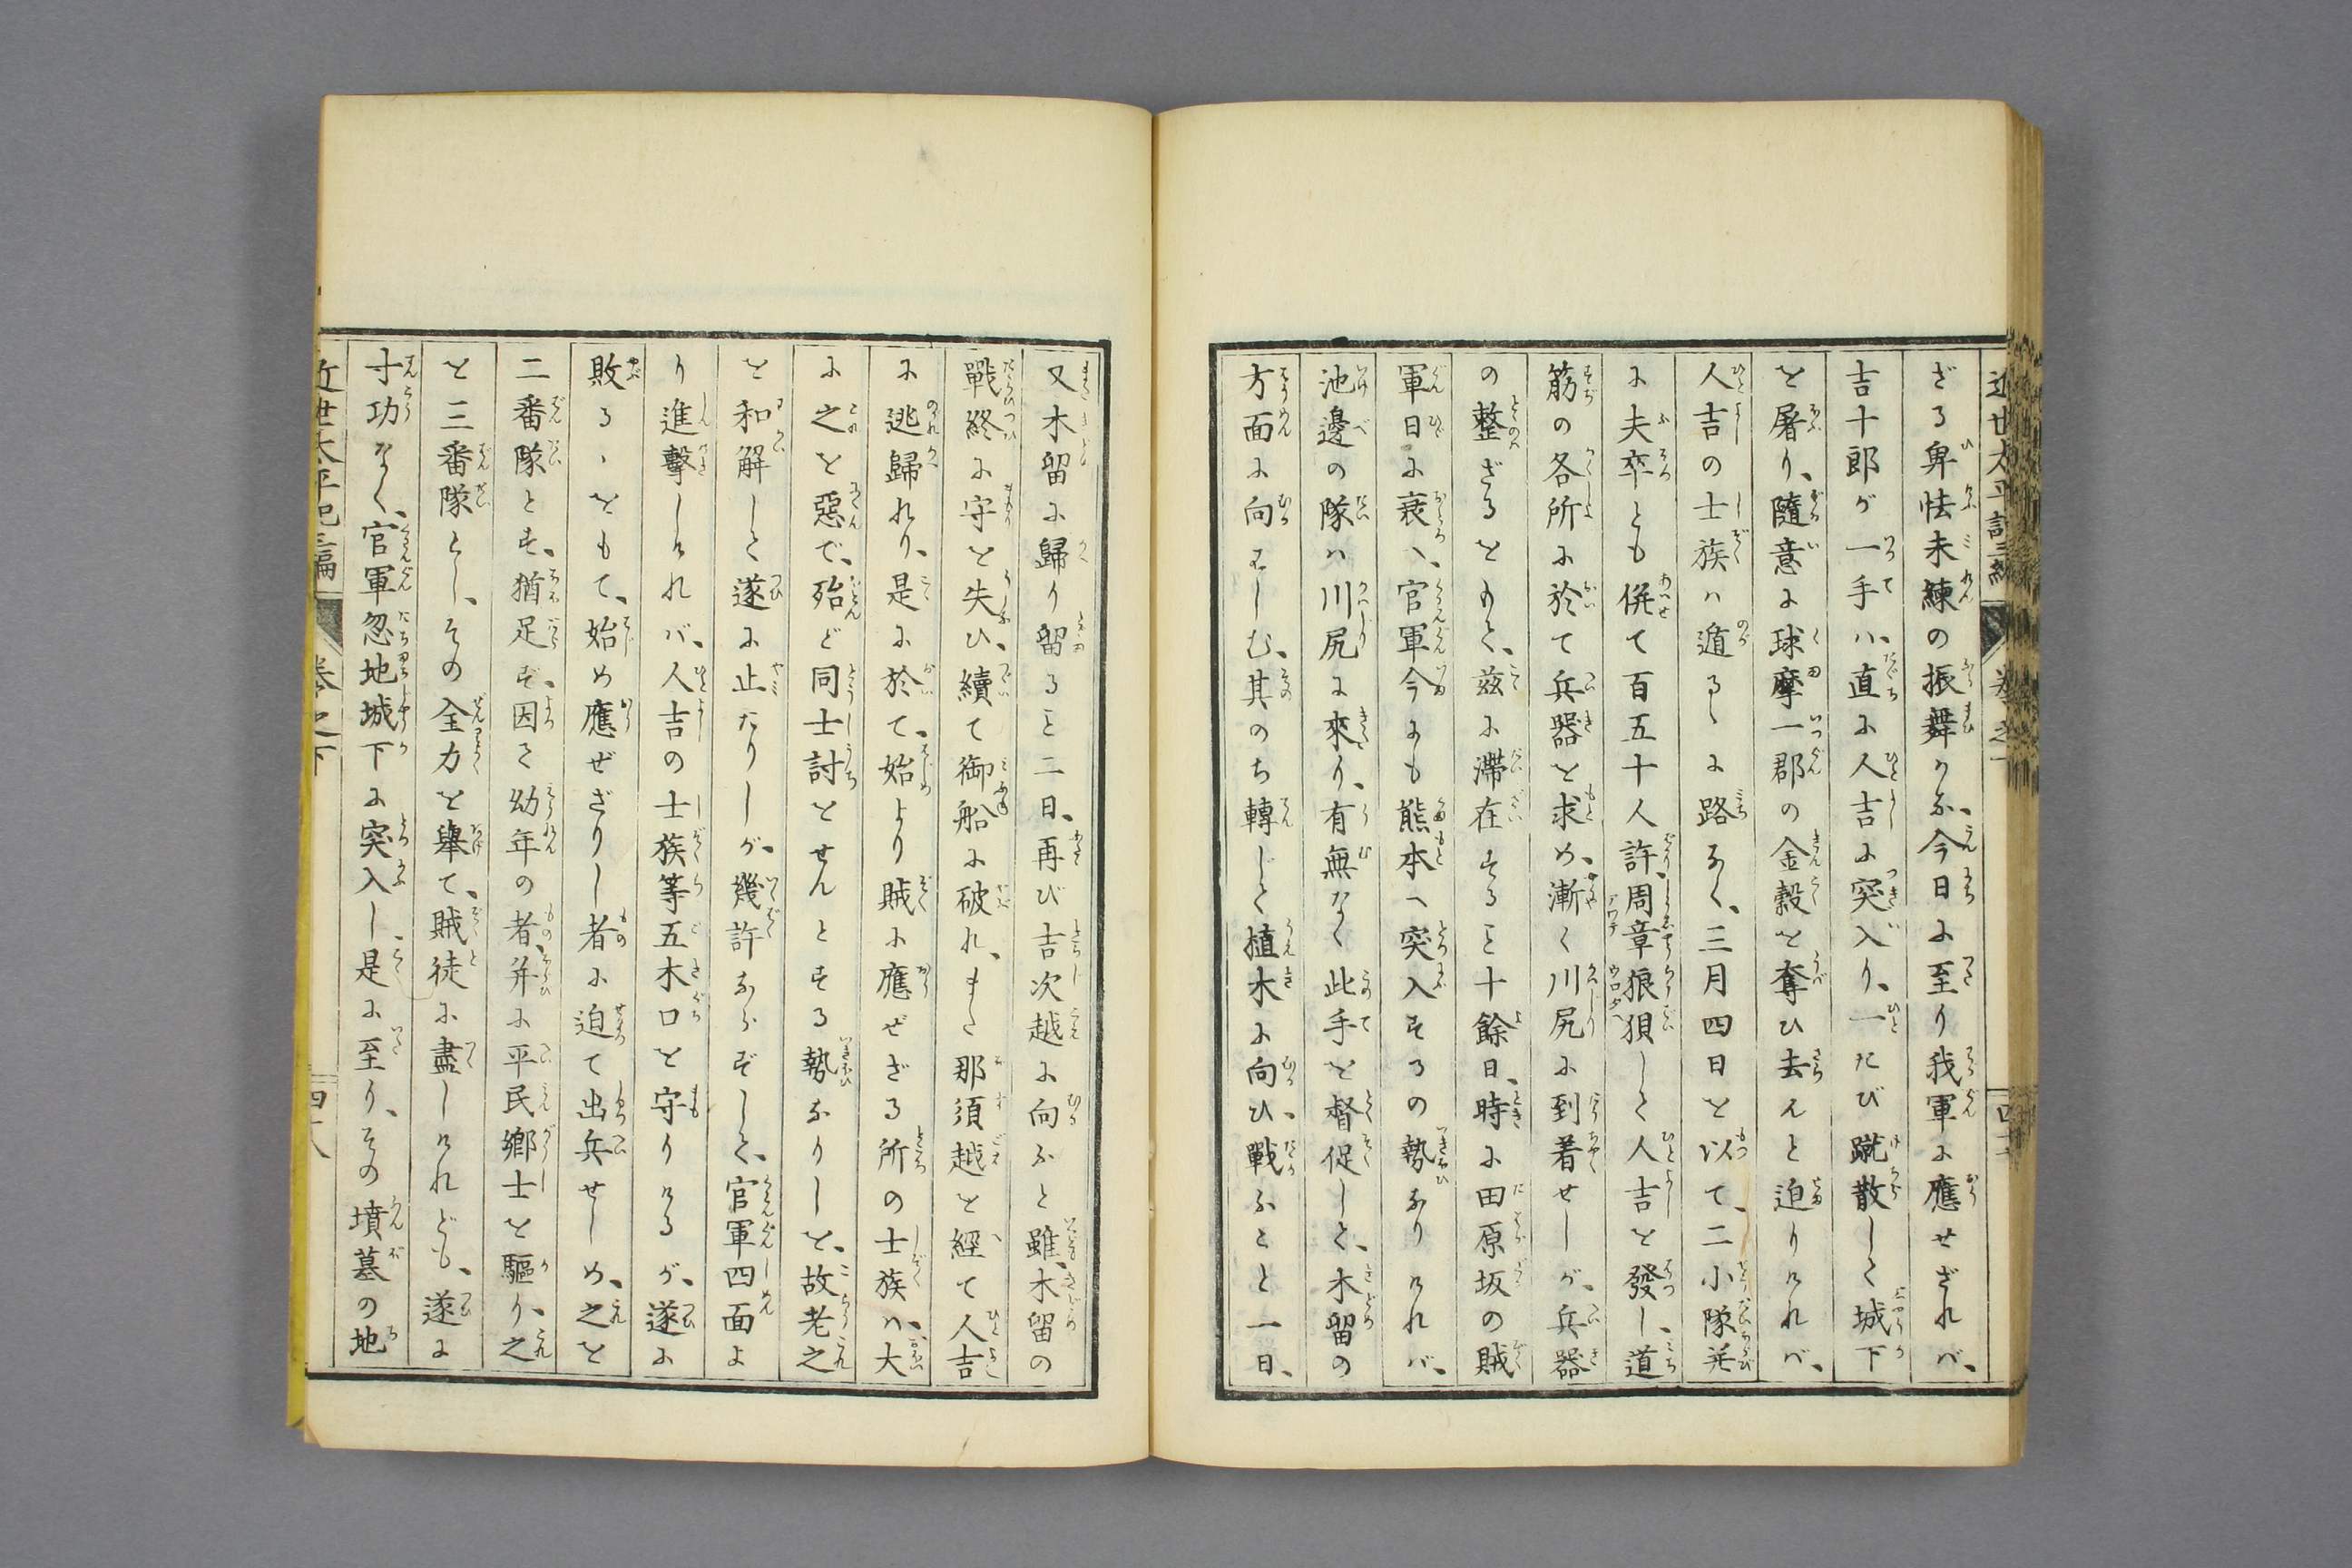 近世太平記三編
ざる卑怯未練の振舞かな、今日に至り我軍に應せざれバ、
吉十郎が一手ハ、直に人吉に突入り、一たび蹴散して城下
を屠り、隨意に球摩一郡の金穀を奪ひ去んと迫りけれバ、
人吉の士族ハ遁るゝに路なく、三月四日を以て、二小隊并
に夫卒とも倂て百五十人許、周章狼狽して人吉を發し、道
筋の各所に於て兵器を求め、漸く川尻に到着せしが、兵器
の整ざるをもて、玆に滯在すること十餘日、時に田原坂の賊
軍日に衰へ、官軍今にも熊本へ突入するの勢なりけれバ、
池邊の隊ハ川尻に來り、有無なく此手を督促して、木留の
方面に向はしむ、其のち轉じて植木に向ひ、戰ふこと一日、
又木留に歸り留ること二日、再び吉次越に向ふと雖、木留の
戰終に守を失ひ、續て御船に破れ、また那須越を經て人吉
に逃歸れり、是に於て、始より賊に應ぜざる所の士族ハ、大
に之を惡で、殆ど同士討をせんとする勢なりしを、故老之
を和解して遂に止たりしが、幾許ならずして、官軍四面よ
り進擊しけれバ、人吉の士族等五木口を守りけるが、遂に
敗るゝをもて、始め應ぜざりし者に迫て出兵せしめ、之を
二番隊とす、猶足ず、因て幼年の者、并に平民鄕士を驅り、之
を三番隊とし、その全力を擧て、賊徒に盡しけれども、遂に
寸功なく、官軍忽地城下に突入し、是に至り、その墳墓の地
近世太平記三編 卷之下 四十八